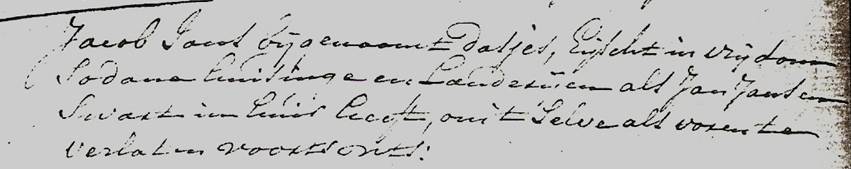 Jacob Jans bijgenaamt Datjes, Eijscht in vrijdom
Sodane huisinge en Landerijen als Jan Jansen
Swart in huis heeft, om 't Selve als voren te
verlaten voorts onts: